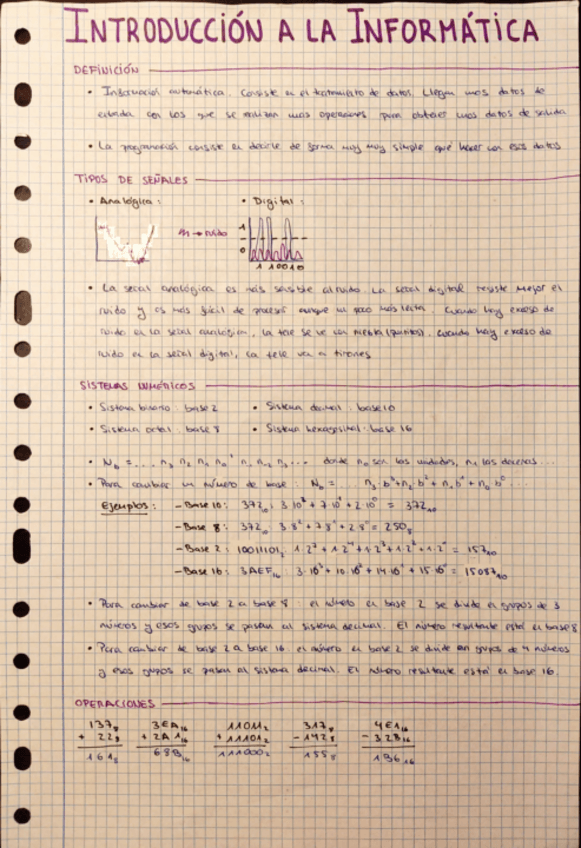 INTRODUCCIÓN A LA INFORMÁTICA
DEFINICIÓN
• Información automática. Consiste en el tratamiento de datos. Llegan unos datos de
entrada con los que se realizan unas operaciones para obtener unos datos de salida
• La programación consiste en decirle de forma muy muy simple qué hacer con esos datos
TIPOS DE SEÑALES
• Analógica :
• Digital :
→ ruido
1
0
1 1 0 0 1 0
• La señal analógica es más sensible al ruido. La señal digital resiste mejor el
ruido y es más fácil de procesar aunque un poco más lenta. Cuando hay exceso de
ruido en la señal analógica, la tele se ve con niebla (puntitos). Cuando hay exceso de
ruido en la señal digital, la tele va a tirones
SISTEMAS NUMÉRICOS
• Sistema binario : base 2 • Sistema decimal : base 10
• Sistema octal : base 8 • Sistema hexagesimal : base 16
donde n₀ son las unidades, n₁ las decenas ...
• Para cambiar un número de base : N_b = ... n₃·b³+n₂·b²+n₁·b¹+n₀·b⁰ ...
Ejemplos : – Base 10: 372₁₀ : 3·10²+7·10¹+2·10⁰ = 372₁₀
– Base 8 : 372₈ : 3·8²+7·8¹+2·8⁰ = 250₁₀
– Base 2 : 10011101₂ : 1·2⁷+1·2⁴+1·2³+1·2²+1·2⁰ = 157₁₀
– Base 16 : 3AEF₁₆ : 3·16³+10·16²+14·16¹+15·16⁰ = 15087₁₀
• Para cambiar de base 2 a base 8 : el número en base 2 se divide en grupos de 3
números y esos grupos se pasan al sistema decimal. El número resultante está en base 8
• Para cambiar de base 2 a base 16 : el número en base 2 se divide en grupos de 4 números
y esos grupos se pasan al sistema decimal. El número resultante está en base 16.
OPERACIONES
137₈ 3EA₁₆ 11011₂ 317₈ 4E1₁₆
+ 22₈ + 2A1₁₆ + 11101₂ – 142₈ – 32B₁₆
161₈ 68B₁₆ 111000₂ 155₈ 1B6₁₆